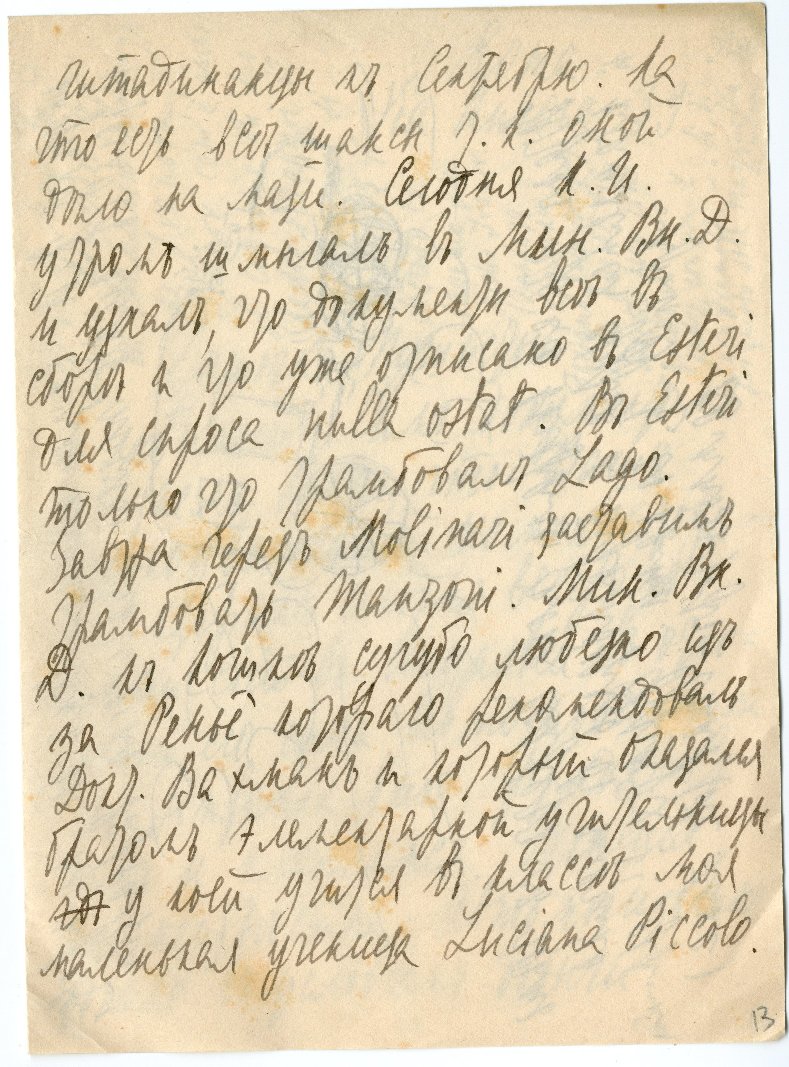 читтадинанцы къ Сентябрю. На
что есть всѣ шансы т. к. оной
дѣло на мази. Сегодня К. И.
утромъ шмыгалъ в Мин. Вн. Д.
и узналъ, что документы всѣ въ
сборѣ и что уже отписано в Esteri
для спроса nulla ostat. Въ Esteri
только что трамбовалъ Lago.
Завтра черезъ Molinari заставимъ
трамбовать Manzoni. Мин. Вн.
Д. къ кошкѣ сугубо любезно изъ
за Реньё котораго рекомендовалъ
Докт. Вахманъ и который оказался
братомъ элементарной учительницы
у коей учится в классѣ моя
маленькая ученица Luciana Piccolo.
13